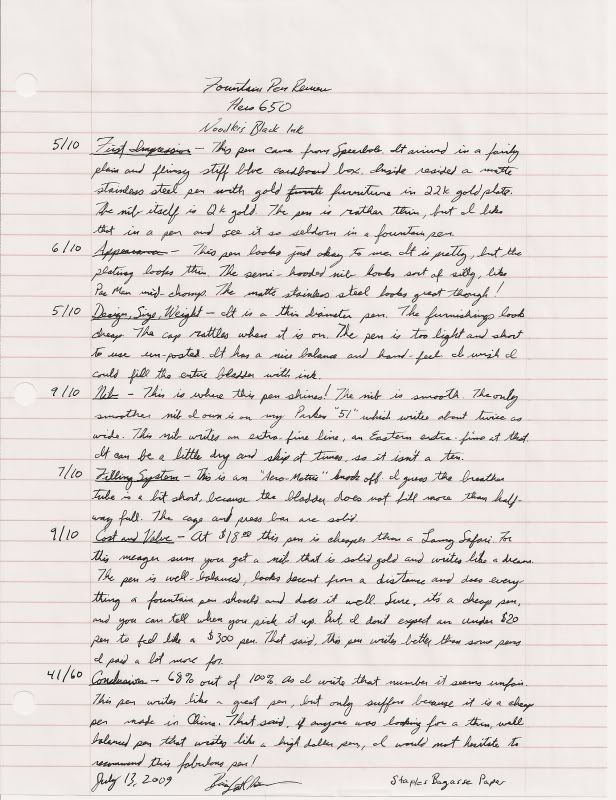 Fountain Pen Review
Hero 650
Noodler's Black Ink
5/10 First Impression - This pen came from Speerbob. It arrived in a fairly
plain and flimsy stiff blue cardboard box. Inside resided a matte
stainless steel pen with gold furniture in 22k gold plate.
The nib itself is 12k gold. The pen is rather thin, but I like
that in a pen and see it so seldom in a fountain pen.
6/10 Appearance - This pen looks just okay to me. It is pretty, but the
plating looks thin. The semi-hooded nib looks sort of silly, like
Pac Man mid-chomp. The matte stainless steel looks great though!
5/10 Design, Size, Weight - It is a thin diameter pen. The furnishings look
cheap. The cap rattles when it is on. The pen is too light and short
to use un-posted. It has a nice balance and hand-feel. I wish I
could fill the entire bladder with ink.
9/10 Nib - This is where this pen shines! The nib is smooth. The only
smoother nib I own is on my Parker "51" which writes about twice as
wide. This nib writes an extra-fine line, an Eastern extra-fine at that.
It can be a little dry and skip at times, so it isn't a ten.
7/10 Filling System - This is an "Aero-Metric" knock off. I guess the breather
tube is a bit short, because the bladder does not fill more than half-
way full. The cage and press bar are solid.
9/10 Cost and Value - At $18.00 this pen is cheaper than a Lamy Safari. For
this meager sum you get a nib that is solid gold and writes like a dream.
The pen is well-balanced, looks decent from a distance and does every
thing a fountain pen should and does it well. Sure, it's a cheap pen,
and you can tell when you pick it up. But I don't expect an under $20
pen to feel like a $300 pen. That said, this pen writes better than some pens
I paid a lot more for.
41/60 Conclusion - 68% out of 100%. As I write that number it seems unfair.
This pen writes like a great pen, but only suffers because it is a cheap
pen made in China. That said, if anyone was looking for a thin, well
balanced pen that writes like a high dollar pen, I would not hesitate to
recommend this fabulous pen!
July 13, 2009 Staples Bagasse Paper